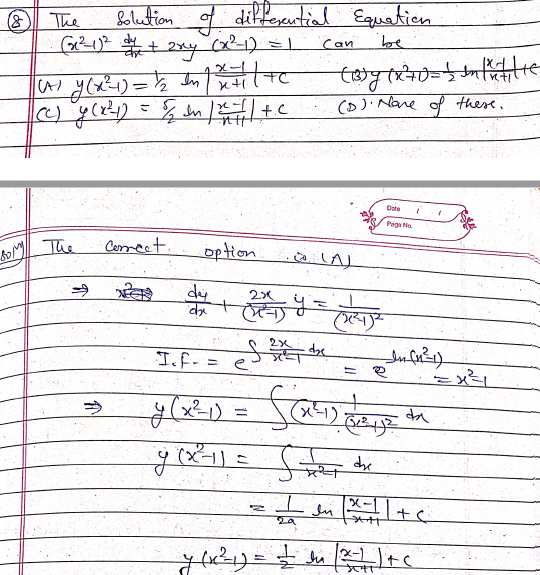 ⑧ The Solution of differential Equation
(x²-1)² dy/dx + 2xy (x²-1) = 1 can be
(A) y(x²-1) = 1/2 ln |x-1/x+1| + c (B) y (x²+1) = 1/2 ln |x-1/x+1| + c
(C) y(x²-1) = 5/2 ln |x-1/x+1| + c (D). None of these.
Date / /
Page No.
Solⁿ The correct option is (A)
⇒ dy/dx + 2x/(x²-1) y = 1/(x²-1)²
I.f. = e^∫ 2x/x²-1 dx = e^ln(x²-1) = x²-1
⇒ y(x²-1) = ∫(x²-1) 1/(x²-1)² dx
y(x²-1) = ∫ 1/x²-1 dx
= 1/2a ln |x-1/x+1| + c
y (x²-1) = 1/2 ln |x-1/x+1| + c